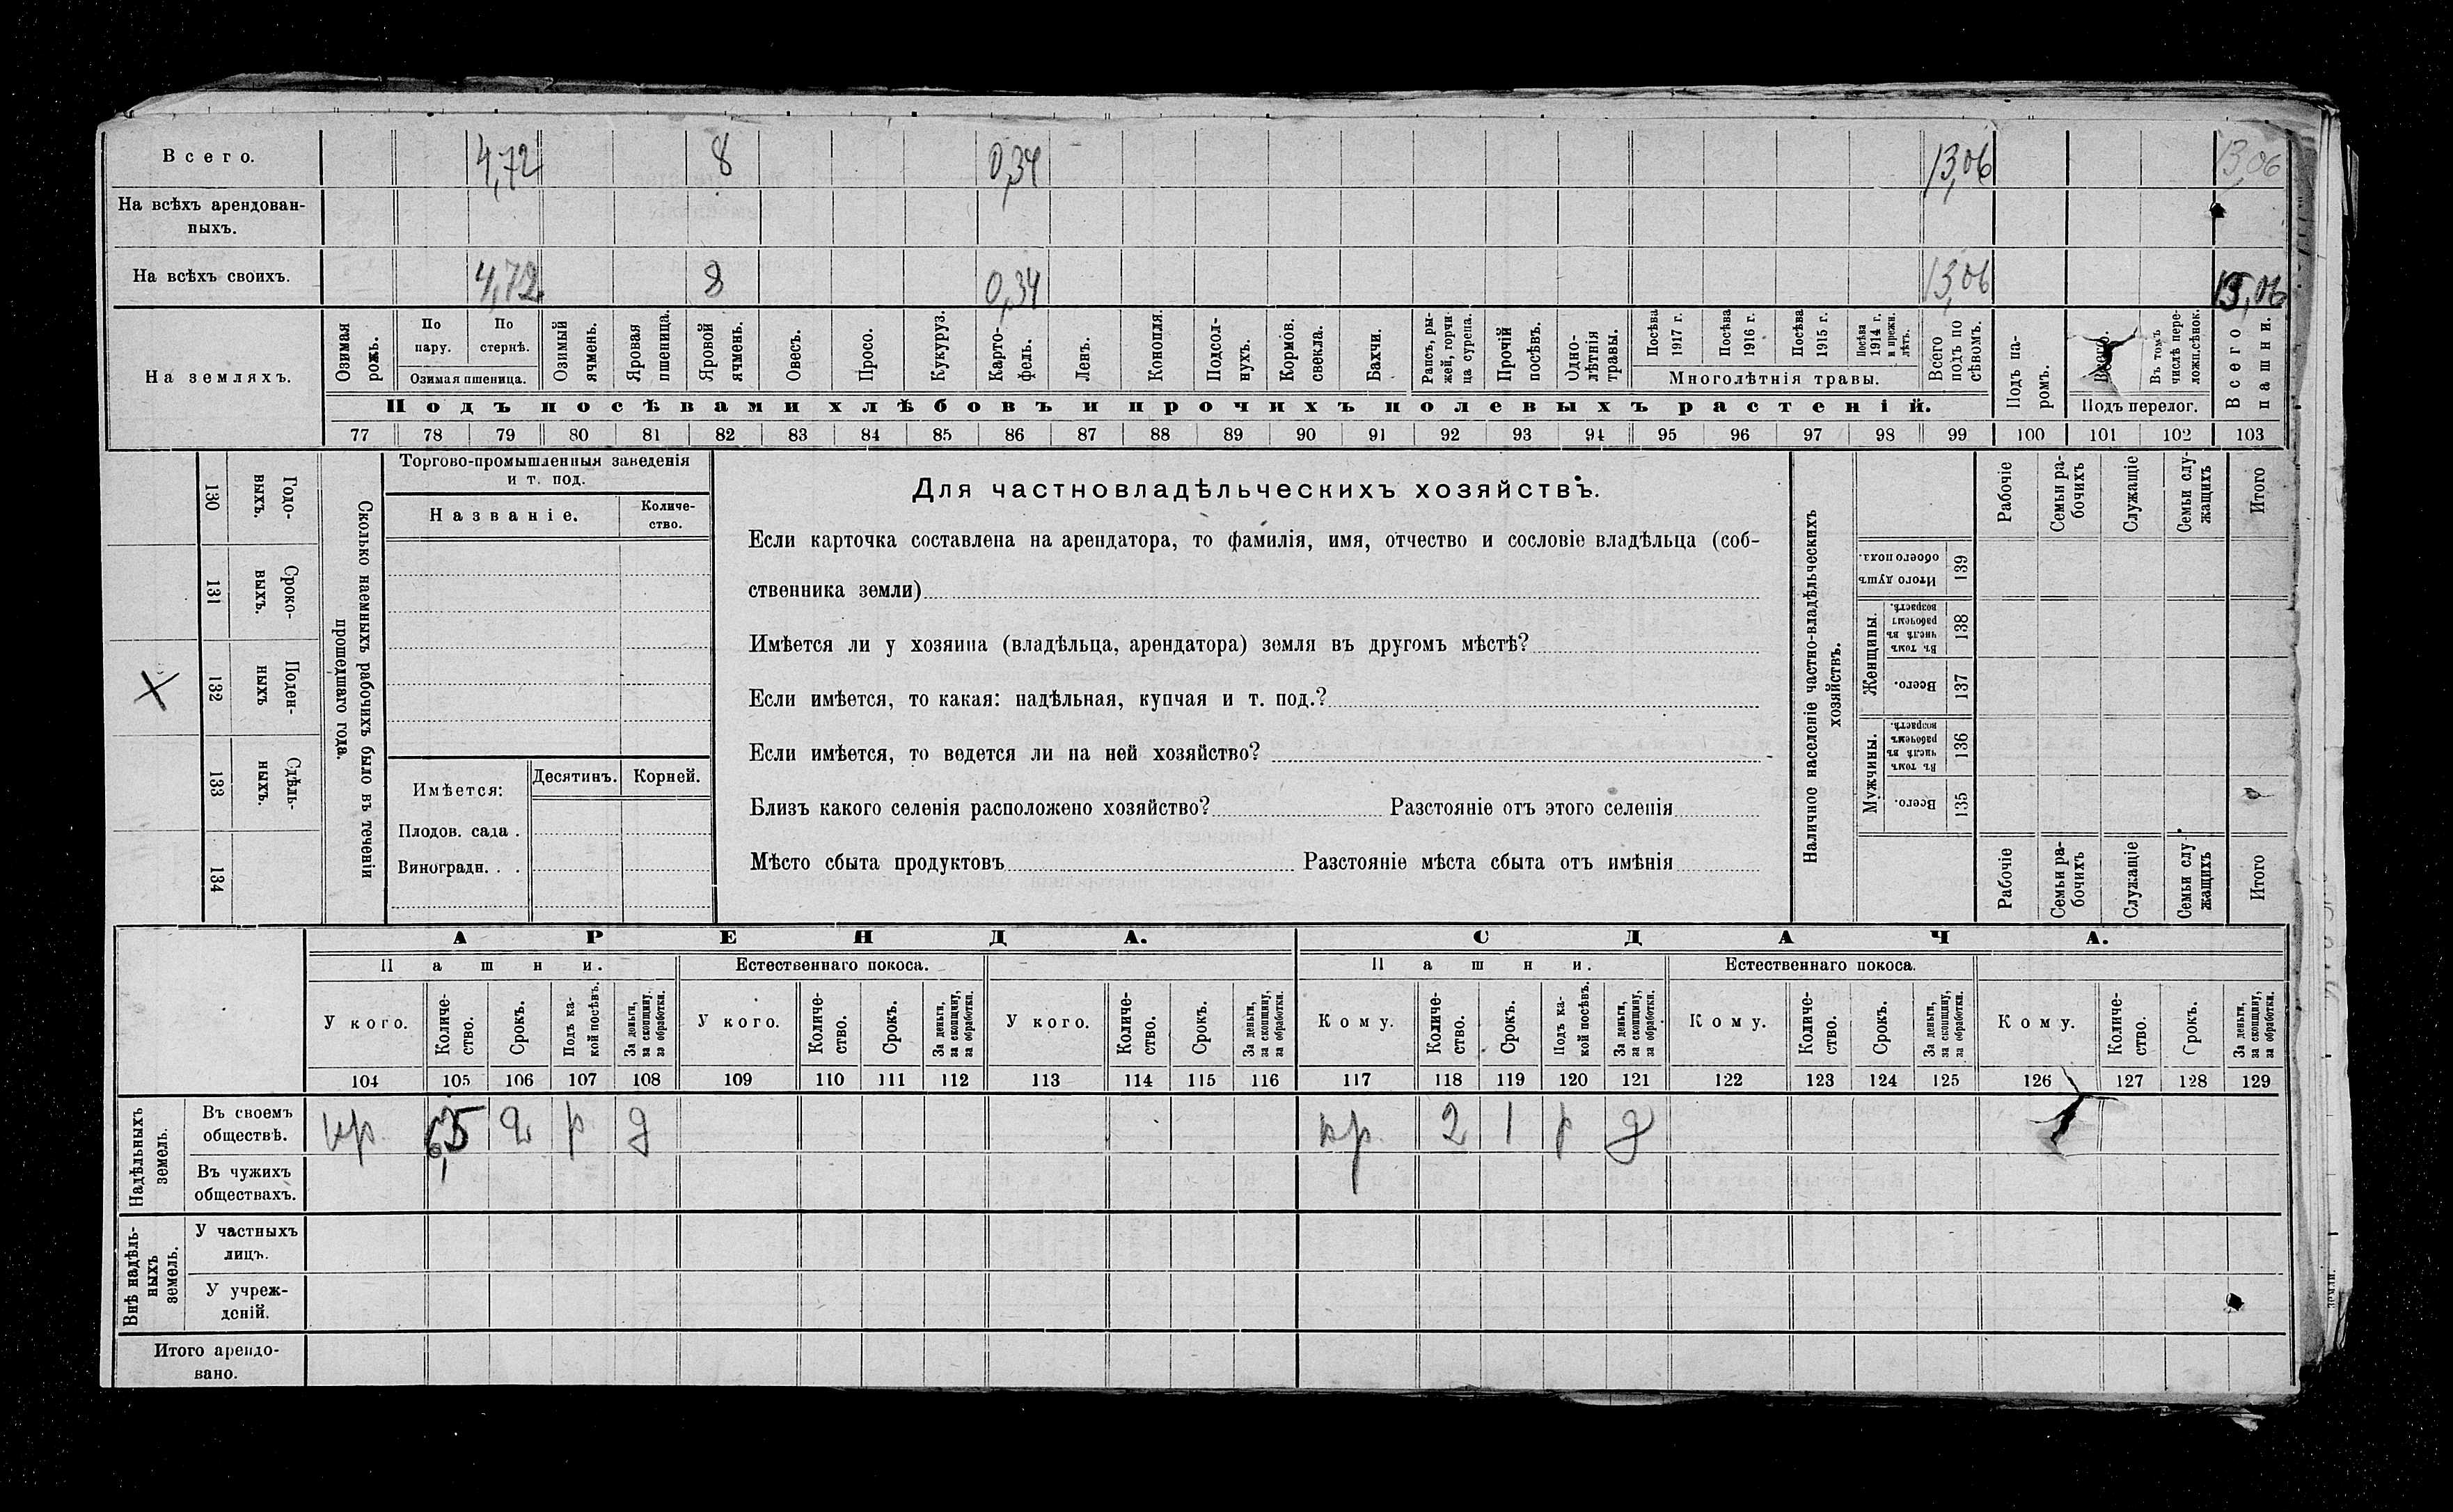 Всего. 4,72 8 0,34 13,06 13,06
На всѣхъ арендован-
ныхъ.
На всѣхъ своихъ. 4,72 8 0,34 13,06 13,06
На земляхъ.
Озимая рожь.
По пару.
По стернѣ.
Озимая пшеница.
Озимый ячмень.
Яровая пшеница.
Яровой ячмень.
Овесъ.
Просо.
Кукуруз.
Карто-
фель.
Ленъ.
Конопля.
Подсол-
нухъ.
Кормов. свекла.
Бахчи.
Рапсъ, ры-
жей, горчи-
ца сурепа.
Прочій посѣвъ.
Одно-
лѣтнія травы.
Посѣва 1917 г.
Посѣва 1916 г.
Посѣва 1915 г.
Посѣва 1914 г. и прежн. лѣтъ.
Многолѣтнія травы.
Всего подъ по
сѣвомъ.
Подъ па-
ромъ.
Всего.
Въ томъ числѣ пере-
ложн.сѣнок.
Подъ перелог.
Всего пашни.
Подъ посѣвами хлѣбовъ и прочихъ полевыхъ растеній.
77 78 79 80 81 82 83 84 85 86 87 88 89 90 91 92 93 94 95 96 97 98 99 100 101 102 103
130 Годо-
выхъ.
131 Сроко-
выхъ.
132 Поден-
ныхъ
133 Сдѣль-
ныхъ.
134
Сколько наемныхъ рабочихъ было въ теченіи
прошедшаго года.
Торгово-промышленныя заведенія
и т. под.
Названіе.
Количе-
ство.
Имѣется: Десятинъ. Корней.
Плодов. сада .
Виноградн. . .
Для частновладѣльческихъ хозяйствъ.
Если карточка составлена на арендатора, то фамилія, имя, отчество и сословіе владѣльца (соб-
ственника земли)
Имѣется ли у хозяина (владѣльца, арендатора) земля въ другомъ мѣстѣ?
Если имѣется, то какая: надѣльная, купчая и т. под.?
Если имѣется, то ведется ли на ней хозяйство?
Близъ какого селенія расположено хозяйство? Разстояніе отъ этого селенія
Мѣсто сбыта продуктовъ Разстояніе мѣста сбыта отъ имѣнія
Наличное населеніе частно-владѣльческихъ
хозяйствъ.
Рабочіе
Семьи ра-
бочихъ
Служащіе
Семьи слу-
жащихъ
Итого
Итого душъ
обоего пола.
139
Женщины.
Въ томъ числѣ въ рабочемъ возрастѣ.
138
Всего.
137
Мужчины.
Въ томъ числѣ въ рабочемъ возрастѣ.
136
Всего.
135
Рабочіе
Семьи ра-
бочихъ
Служащіе
Семьи слу
жащихъ
Итого
АРЕНДА. СДАЧА.
Пашни. Естественнаго покоса. Пашни. Естественнаго покоса.
У кого.
Количе-
ство.
Срокъ.
Подъ ка-
кой посѣвъ.
За деньги,
за скопщину,
за обработки.
У кого.
Количе-
ство.
Срокъ.
За деньги,
за скопщину,
за обработки.
У кого.
Количе-
ство.
Срокъ.
За деньги,
за скопщину,
за обработки.
Кому.
Количе-
ство.
Срокъ.
Подъ ка-
кой посѣвъ.
За деньги,
за скопщину,
за обработки.
Кому.
Количе-
ство.
Срокъ.
За деньги,
за скопщину,
за обработки.
Кому.
Количе-
ство.
Срокъ.
За деньги,
за скопщину,
за обработки.
104 105 106 107 108 109 110 111 112 113 114 115 116 117 118 119 120 121 122 123 124 125 126 127 128 129
Надѣльныхъ
земель.
Въ своемъ
обществѣ.
кр. 2 р д кр. 2 1 р д
Въ чужихъ
обществахъ.
Внѣ надѣль-
ныхъ
земель.
У частныхъ
лицъ.
У учреж-
деній.
Итого арендо-
вано.
земли.